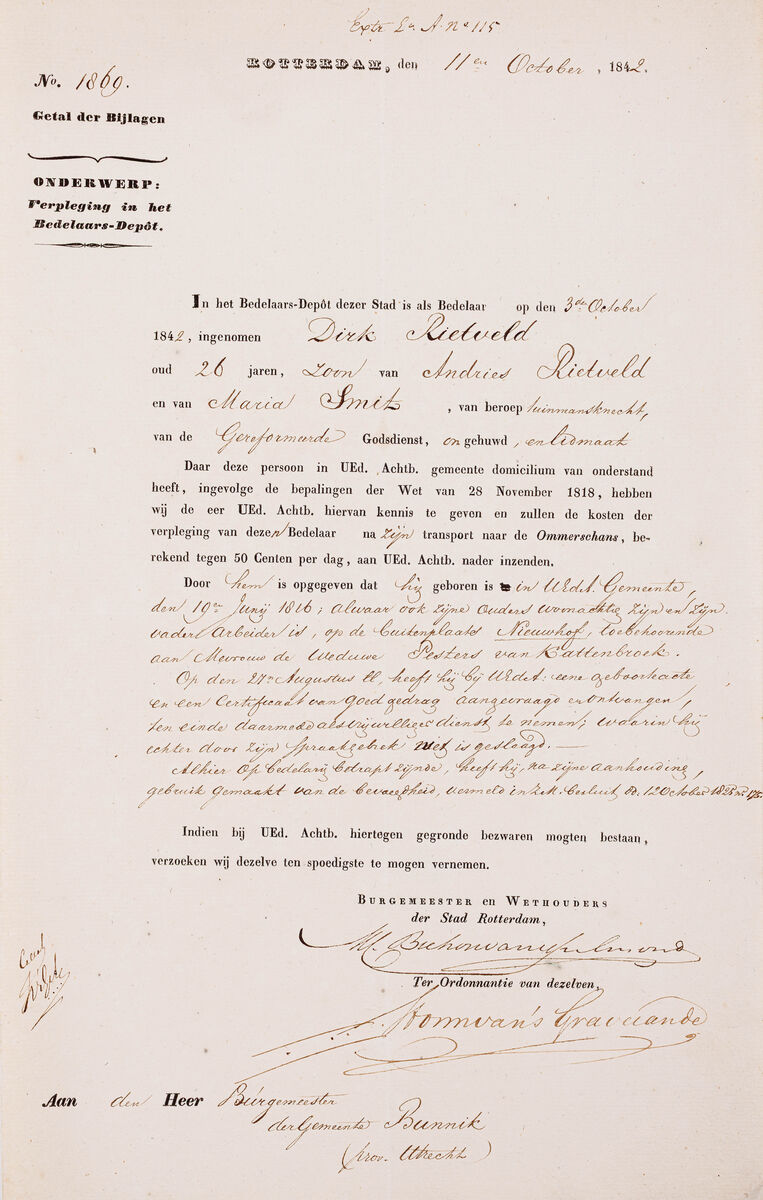 Extr La A. No 115
ROTTERDAM, den 11en October, 1842.
No. 1869.
Getal der Bijlagen
ONDERWERP:
Verpleging in het
Bedelaars-Depôt.
In het Bedelaars-Depôt dezer Stad is als Bedelaar op den 3den October
1842, ingenomen Dirk Rietveld
oud 26 jaren, zoon van Andries Rietveld
en van Maria Smit, van beroep tuinmansknecht,
van de Gereformeerde Godsdienst, ongehuwd, en Lidmaat
Daar deze persoon in UEd. Achtb. gemeente domicilium van onderstand
heeft, ingevolge de bepalingen der Wet van 28 November 1818, hebben
wij de eer UEd. Achtb. hiervan kennis te geven en zullen de kosten der
verpleging van dezen Bedelaar na zijn transport naar de Ommerschans, be-
rekend tegen 50 Centen per dag, aan UEd. Achtb. nader inzenden.
Door hem is opgegeven dat hij geboren is in UEdA. Gemeente,
den 19en Junij 1816; alwaar ook zijne ouders woonachtig zijn en zijn
vader arbeider is, op de buitenplaats Nieuwhof, toebehoorende
aan Mevrouw de Weduwe Pesters van Kattenbroek.
Op den 27n Augustus ll, heeft hij bij UEdA: eene geboorteacte
en een Certificaat van goed gedrag aangevraagd en ontvangen,
ten einde daarmede als vrijwilliger dienst te nemen; waarin hij
echter door zijn spraakgebrek niet is geslaagd. —
Alhier op bedelarij betrapt zijnde, heeft hij, na zijne aanhouding,
gebruik gemaakt van de bevoegdheid, vermeld in Z.M. besluit dd. 12 October 1825 No 175.
Indien bij UEd. Achtb. hiertegen gegronde bezwaren mogten bestaan,
verzoeken wij dezelve ten spoedigste te mogen vernemen.
BURGEMEESTER en WETHOUDERS
der Stad Rotterdam,
M. Bichon van IJsselmonde
Ter Ordonnantie van dezelven,
Storm van 's Gravesande
Aan den Heer Burgemeester
der Gemeente Bunnik
(prov. Utrecht)